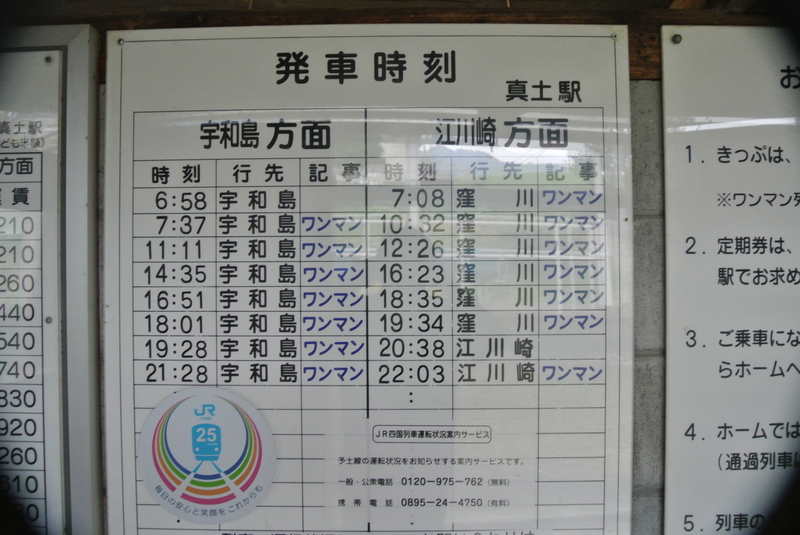 真土駅
方面
運賃
210
210
260
440
540
740
830
920
260
610
発車時刻
真土駅
宇和島方面 江川崎方面
時刻 行先 記事 時刻 行先 記事
6:58 宇和島 7:08 窪川 ワンマン
7:37 宇和島 ワンマン 10:32 窪川 ワンマン
11:11 宇和島 ワンマン 12:26 窪川 ワンマン
14:35 宇和島 ワンマン 16:23 窪川 ワンマン
16:51 宇和島 ワンマン 18:35 窪川 ワンマン
18:01 宇和島 ワンマン 19:34 窪川 ワンマン
19:28 宇和島 ワンマン 20:38 江川崎
21:28 宇和島 ワンマン 22:03 江川崎 ワンマン
:
JR
25
毎日の安心と笑顔をこれからも
JR四国列車運転状況案内サービス
予土線の運転状況をお知らせする案内サービスです。
一般・公衆電話 0120-975-762 (無料)
携帯電話 0895-24-4750 (有料)
お
1. きっぷは、
※ワンマン列
2. 定期券は、
駅でお求め
3. ご乗車にな
らホームへ
4. ホームでは
(通過列車に
5. 列車の